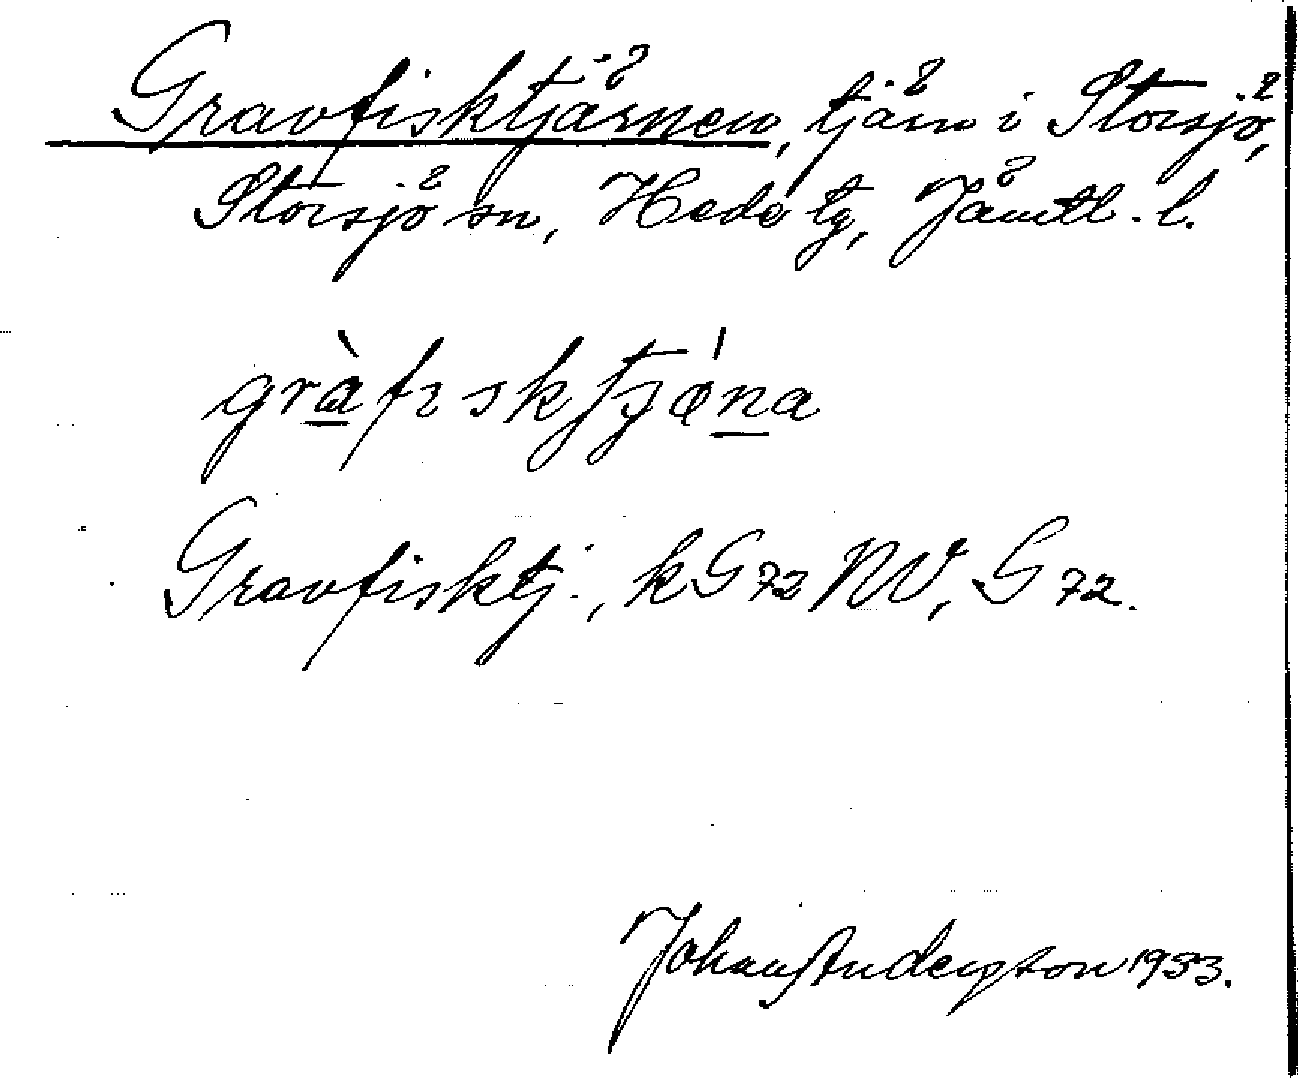 Gravfisktjärnen, tjärn i Storsjö,
Storsjö sn, Hede tg, Jämtl. l.
gràfɩskʃtjǿna
Gravfisktj., kG72NV, G72.
Johan Anderzson 1953.